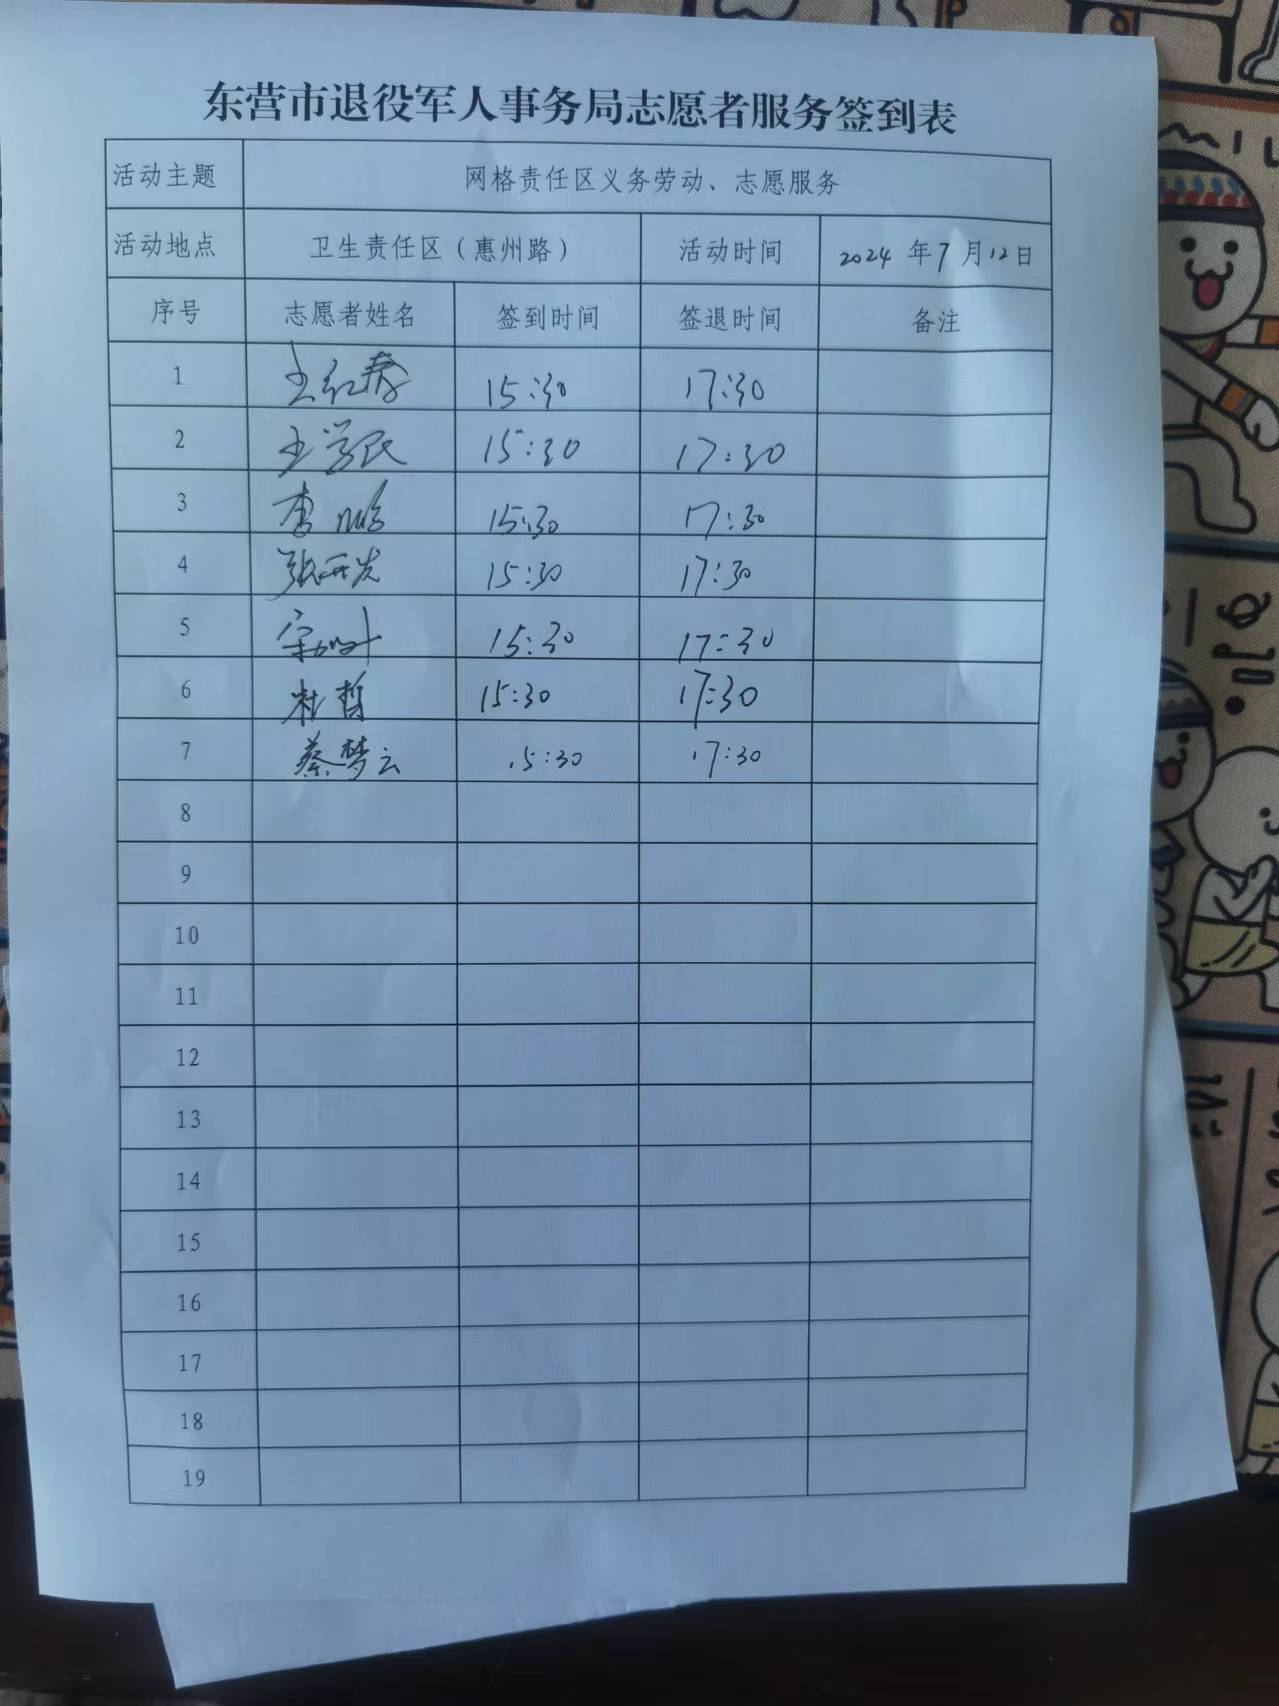 东营市退役军人事务局志愿者服务签到表
活动主题 网格责任区义务劳动、志愿服务
活动地点 卫生责任区（惠州路） 活动时间 2024 年 7 月 12 日
序号 志愿者姓名 签到时间 签退时间 备注
1 王红春 15:30 17:30
2 王学民 15:30 17:30
3 李鹏 15:30 17:30
4 张开发 15:30 17:30
5 宋 15:30 17:30
6 杜哲 15:30 17:30
7 蔡梦云 15:30 17:30
8
9
10
11
12
13
14
15
16
17
18
19